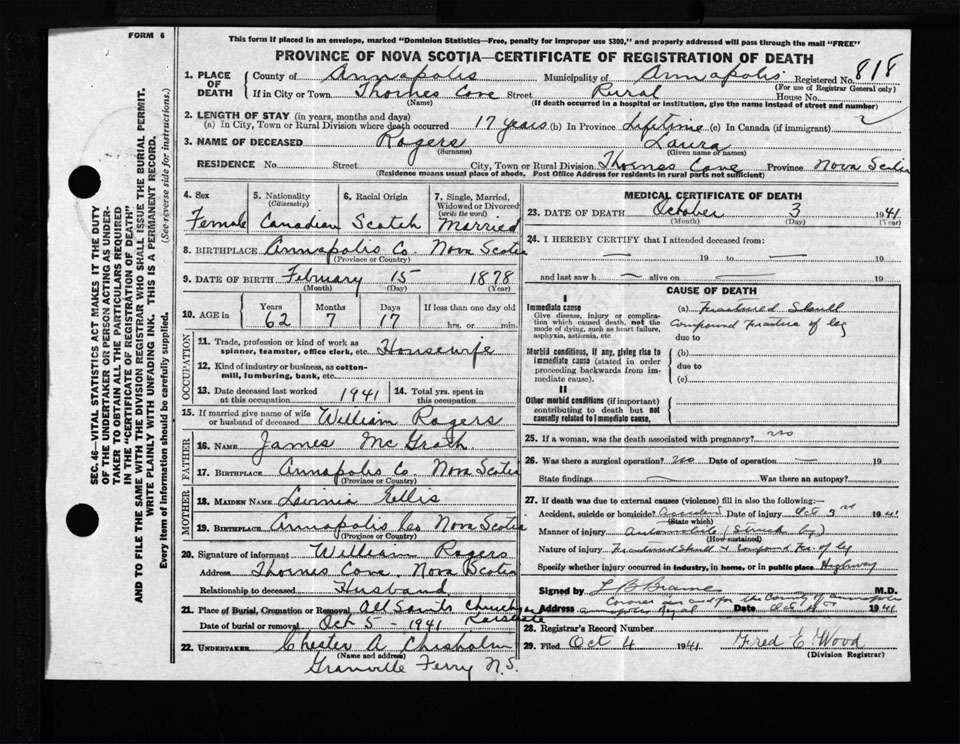 FORM 6
This form if placed in an envelope, marked "Dominion Statistics—Free, penalty for improper use $300," and properly addressed will pass through the mail "FREE"
PROVINCE OF NOVA SCOTIA—CERTIFICATE OF REGISTRATION OF DEATH
1. PLACE OF DEATH County of Annapolis Municipality of Annapolis Registered No. 818
(For use of Registrar General only)
If in City or Town Thornes Cove Street Rural House No.
(Name) (If death occurred in a hospital or institution, give the name instead of street and number)
2. LENGTH OF STAY (in years, months and days)
(a) In City, Town or Rural Division where death occurred 17 years (b) In Province Lifetime (c) In Canada (if immigrant)
3. NAME OF DECEASED Rogers Laura
(Surname) (Given name or names)
RESIDENCE No. Street City, Town or Rural Division Thornes Cove Province Nova Scotia
(Residence means usual place of abode. Post Office Address for residents in rural parts not sufficient)
4. Sex Female
5. Nationality (Citizenship) Canadian
6. Racial Origin Scotch
7. Single, Married, Widowed or Divorced (write the word) Married
8. BIRTHPLACE Annapolis Co. Nova Scotia
(Province or Country)
9. DATE OF BIRTH February 15 1878
(Month) (Day) (Year)
10. AGE in Years 62 Months 7 Days 17 If less than one day old hrs. or min.
OCCUPATION
11. Trade, profession or kind of work as spinner, teamster, office clerk, etc. Housewife
12. Kind of industry or business, as cotton-mill, lumbering, bank, etc.
13. Date deceased last worked at this occupation 1941
14. Total yrs. spent in this occupation
15. If married give name of wife or husband of deceased William Rogers
FATHER
16. NAME James Mc Grath
17. BIRTHPLACE Annapolis Co. Nova Scotia
(Province or Country)
MOTHER
18. MAIDEN NAME Ellis
19. BIRTHPLACE Annapolis Co Nova Scotia
(Province or Country)
20. Signature of informant William Rogers
Address Thornes Cove, Nova Scotia
Relationship to deceased Husband
21. Place of Burial, Cremation or Removal All Saints Church
Date of burial or removal Oct 5 - 1941
22. UNDERTAKER Chester A Chisholm
(Name and address)
Granville Ferry N.S.
MEDICAL CERTIFICATE OF DEATH
23. DATE OF DEATH October 3 1941
(Month) (Day) (Year)
24. I HEREBY CERTIFY that I attended deceased from:
— 19 to — 19
and last saw h — alive on — 19
CAUSE OF DEATH
I
Immediate cause
Give disease, injury or complication which caused death, not the mode of dying, such as heart failure, asphyxia, asthenia, etc
(a) Fractured Skull
Compound fracture of leg
due to
Morbid conditions, if any, giving rise to immediate cause (stated in order proceeding backwards from immediate cause).
(b)
due to
(c)
II
Other morbid conditions (if important) contributing to death but not causally related to immediate cause.
25. If a woman, was the death associated with pregnancy? no
26. Was there a surgical operation? No Date of operation — 19
State findings — Was there an autopsy?
27. If death was due to external causes (violence) fill in also the following:—
Accident, suicide or homicide? Accident Date of injury Oct 3rd 1941
(State which)
Manner of injury Automobile (Struck by)
(How sustained)
Nature of injury Fractured Skull & Compound Frac of leg
Specify whether injury occurred in industry, in home, or in public place Highway
Signed by M.D.
Coroner in and for the County of Annapolis
Address Annapolis Royal Date Oct 1941
28. Registrar's Record Number
29. Filed Oct 4 1941 Fred E. Wood
(Division Registrar)
SEC. 46—VITAL STATISTICS ACT MAKES IT THE DUTY
OF THE UNDERTAKER OR PERSON ACTING AS UNDER-
TAKER TO OBTAIN ALL THE PARTICULARS REQUIRED
IN THE "CERTIFICATE OF REGISTRATION OF DEATH"
AND TO FILE THE SAME WITH THE DIVISION REGISTRAR WHO SHALL ISSUE THE BURIAL PERMIT.
WRITE PLAINLY WITH UNFADING INK. THIS IS A PERMANENT RECORD.
Every item of information should be carefully supplied. (See reverse side for instructions.)